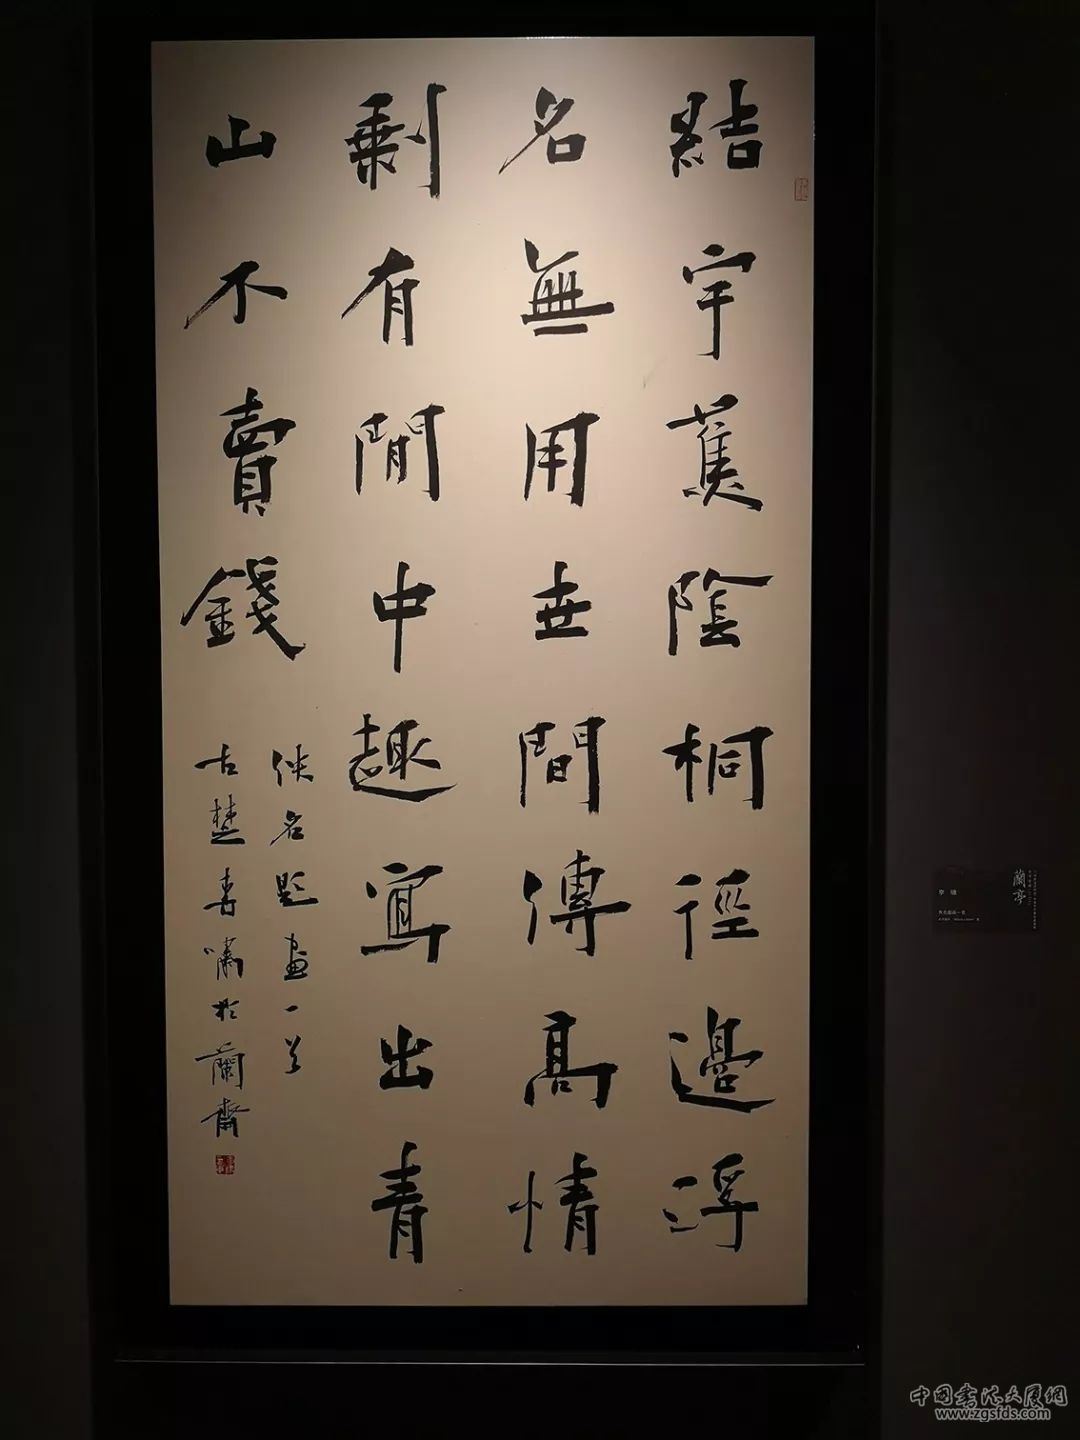 結宇蕉陰桐徑邊浮
名無用世間傳高情
剩有閒中趣寫出青
山不賣錢
佚名題畫一首
古楚春嘯於蘭齋
蘭亭
中國書法大厦網
www.zgsfds.com